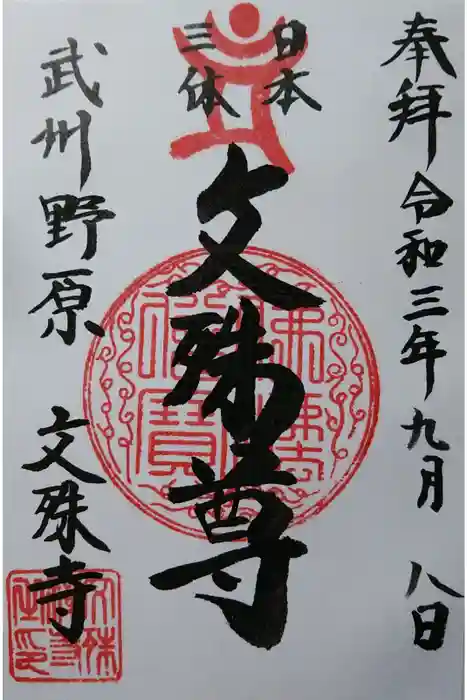 奉拝 令和三年九月 八日
日本
三体
文殊尊
武州野原 文殊寺